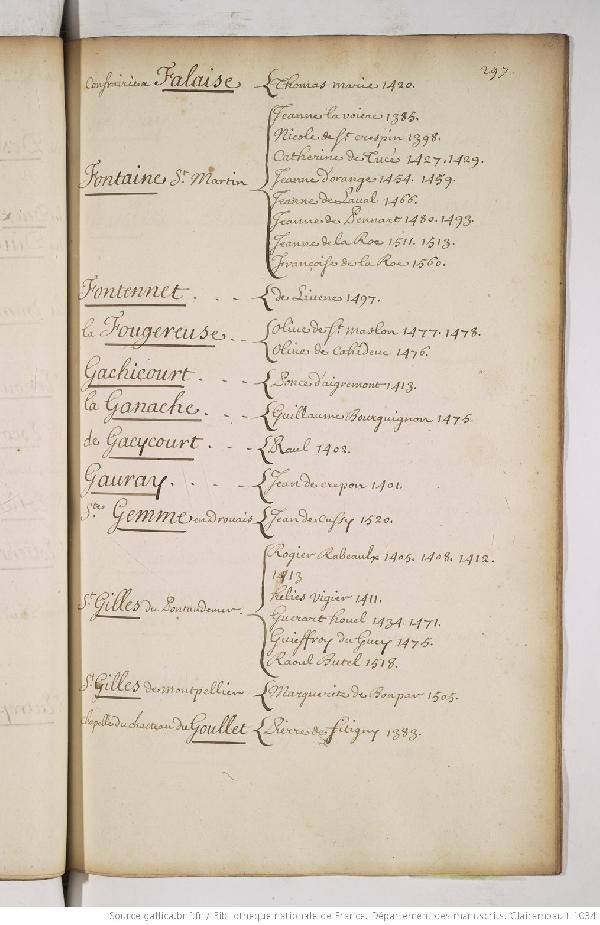 297.
Confrairie a Falaise { Thomas marie 1420.
Jeanne la voiere 1385.
Nicole de St. crespin 1398.
Catherine de Lucé 1427. 1429.
Fontaine St. Martin { Jeanne d'orange 1454. 1459.
Jeanne de Laval 1466.
Jeanne de Pennart 1480. 1493.
Jeanne de la Roe 1511. 1513.
Françoise de la Roe 1560.
Fontennet . . . { de Livene 1497.
la Fougereuse . . { Olive de St. maslon 1477. 1478.
Olive de Cahideuc 1476.
Gachicourt . . . { Ponce d'aigremont 1413.
la Ganache . . . { Guillaume Bourguignon 1475.
de Gacycourt . . . { Raul 1402.
Gauray . . . { Jean de crepon 1401.
Ste. Gemme en drouais { Jean de cussy 1520.
Rogier Rabeaulx 1405. 1408. 1412.
1413
helies vigier 1411.
St. Gilles du Pontaudemer { Guerart houel 1434. 1471.
Guieffroy du Guey 1475.
Raoul Butel 1518.
St. Gilles de montpellier { Marguerite de Bonpar 1505.
chapelle du chasteau du Goullet { Pierre de fitigny 1383.
Source gallica.bnf.fr / Bibliothèque nationale de France. Département des manuscrits. Clairambault 1034